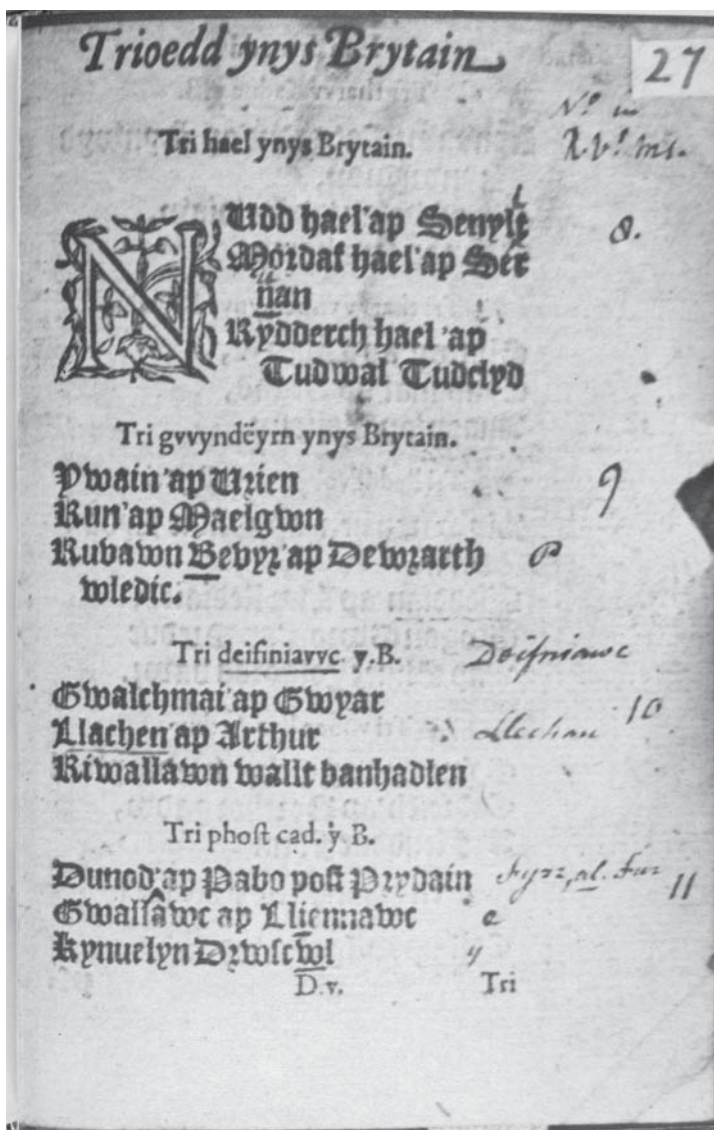 Trioedd ynys Brytain
27
Tri hael ynys Brytain.
NUdd hael ap Senyllt
Mordaf hael ap Ser
nan
Rydderch hael ap
Tudwal Tudclyd
8.
Tri gvvyndëyrn ynys Brytain.
Ywain ap Urien
9
Run ap Maelgwn
Rubawn Bevyr ap Dewrarth
wledic.
Tri deifiniavvc y.B. Deifniawc
Gwalchmai ap Gwyar
10
Llachen ap Arthur Llechau
Riwallawn wallt banhadlen
Tri phost cad. ẏ B.
Dunod ap Pabo post Prydain
11
Gwallawc ap Lliennawc e
Kynuelyn Drwscwl y
D.v. Tri